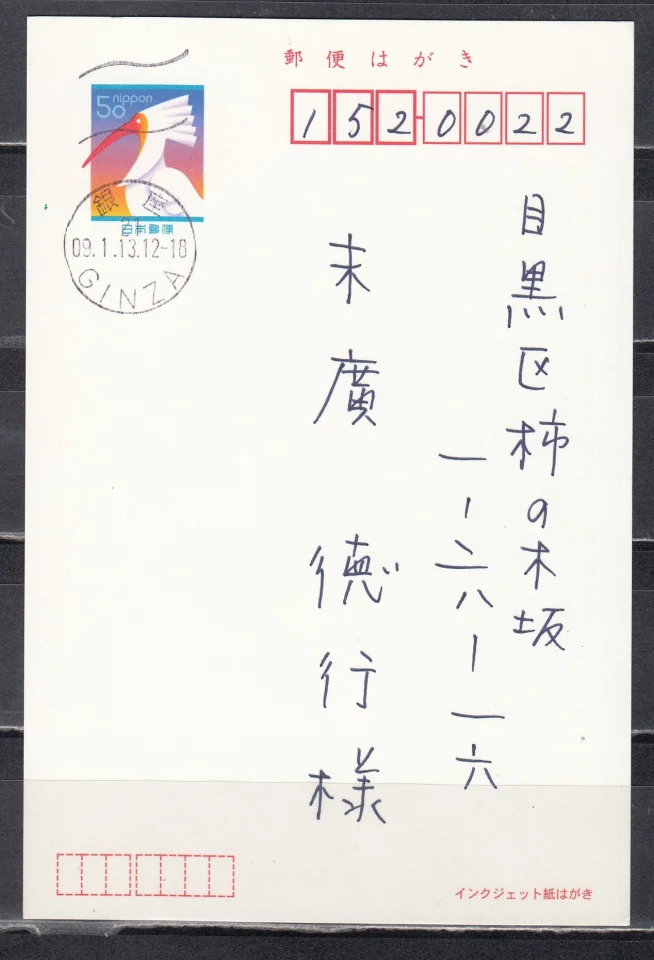 郵便はがき
50 nippon
日本郵便
152-0022
銀座
21
09.1.13.12-18
GINZA
目黒区柿の木坂
一-二八-一六
末廣 德行様
インクジェット紙はがき